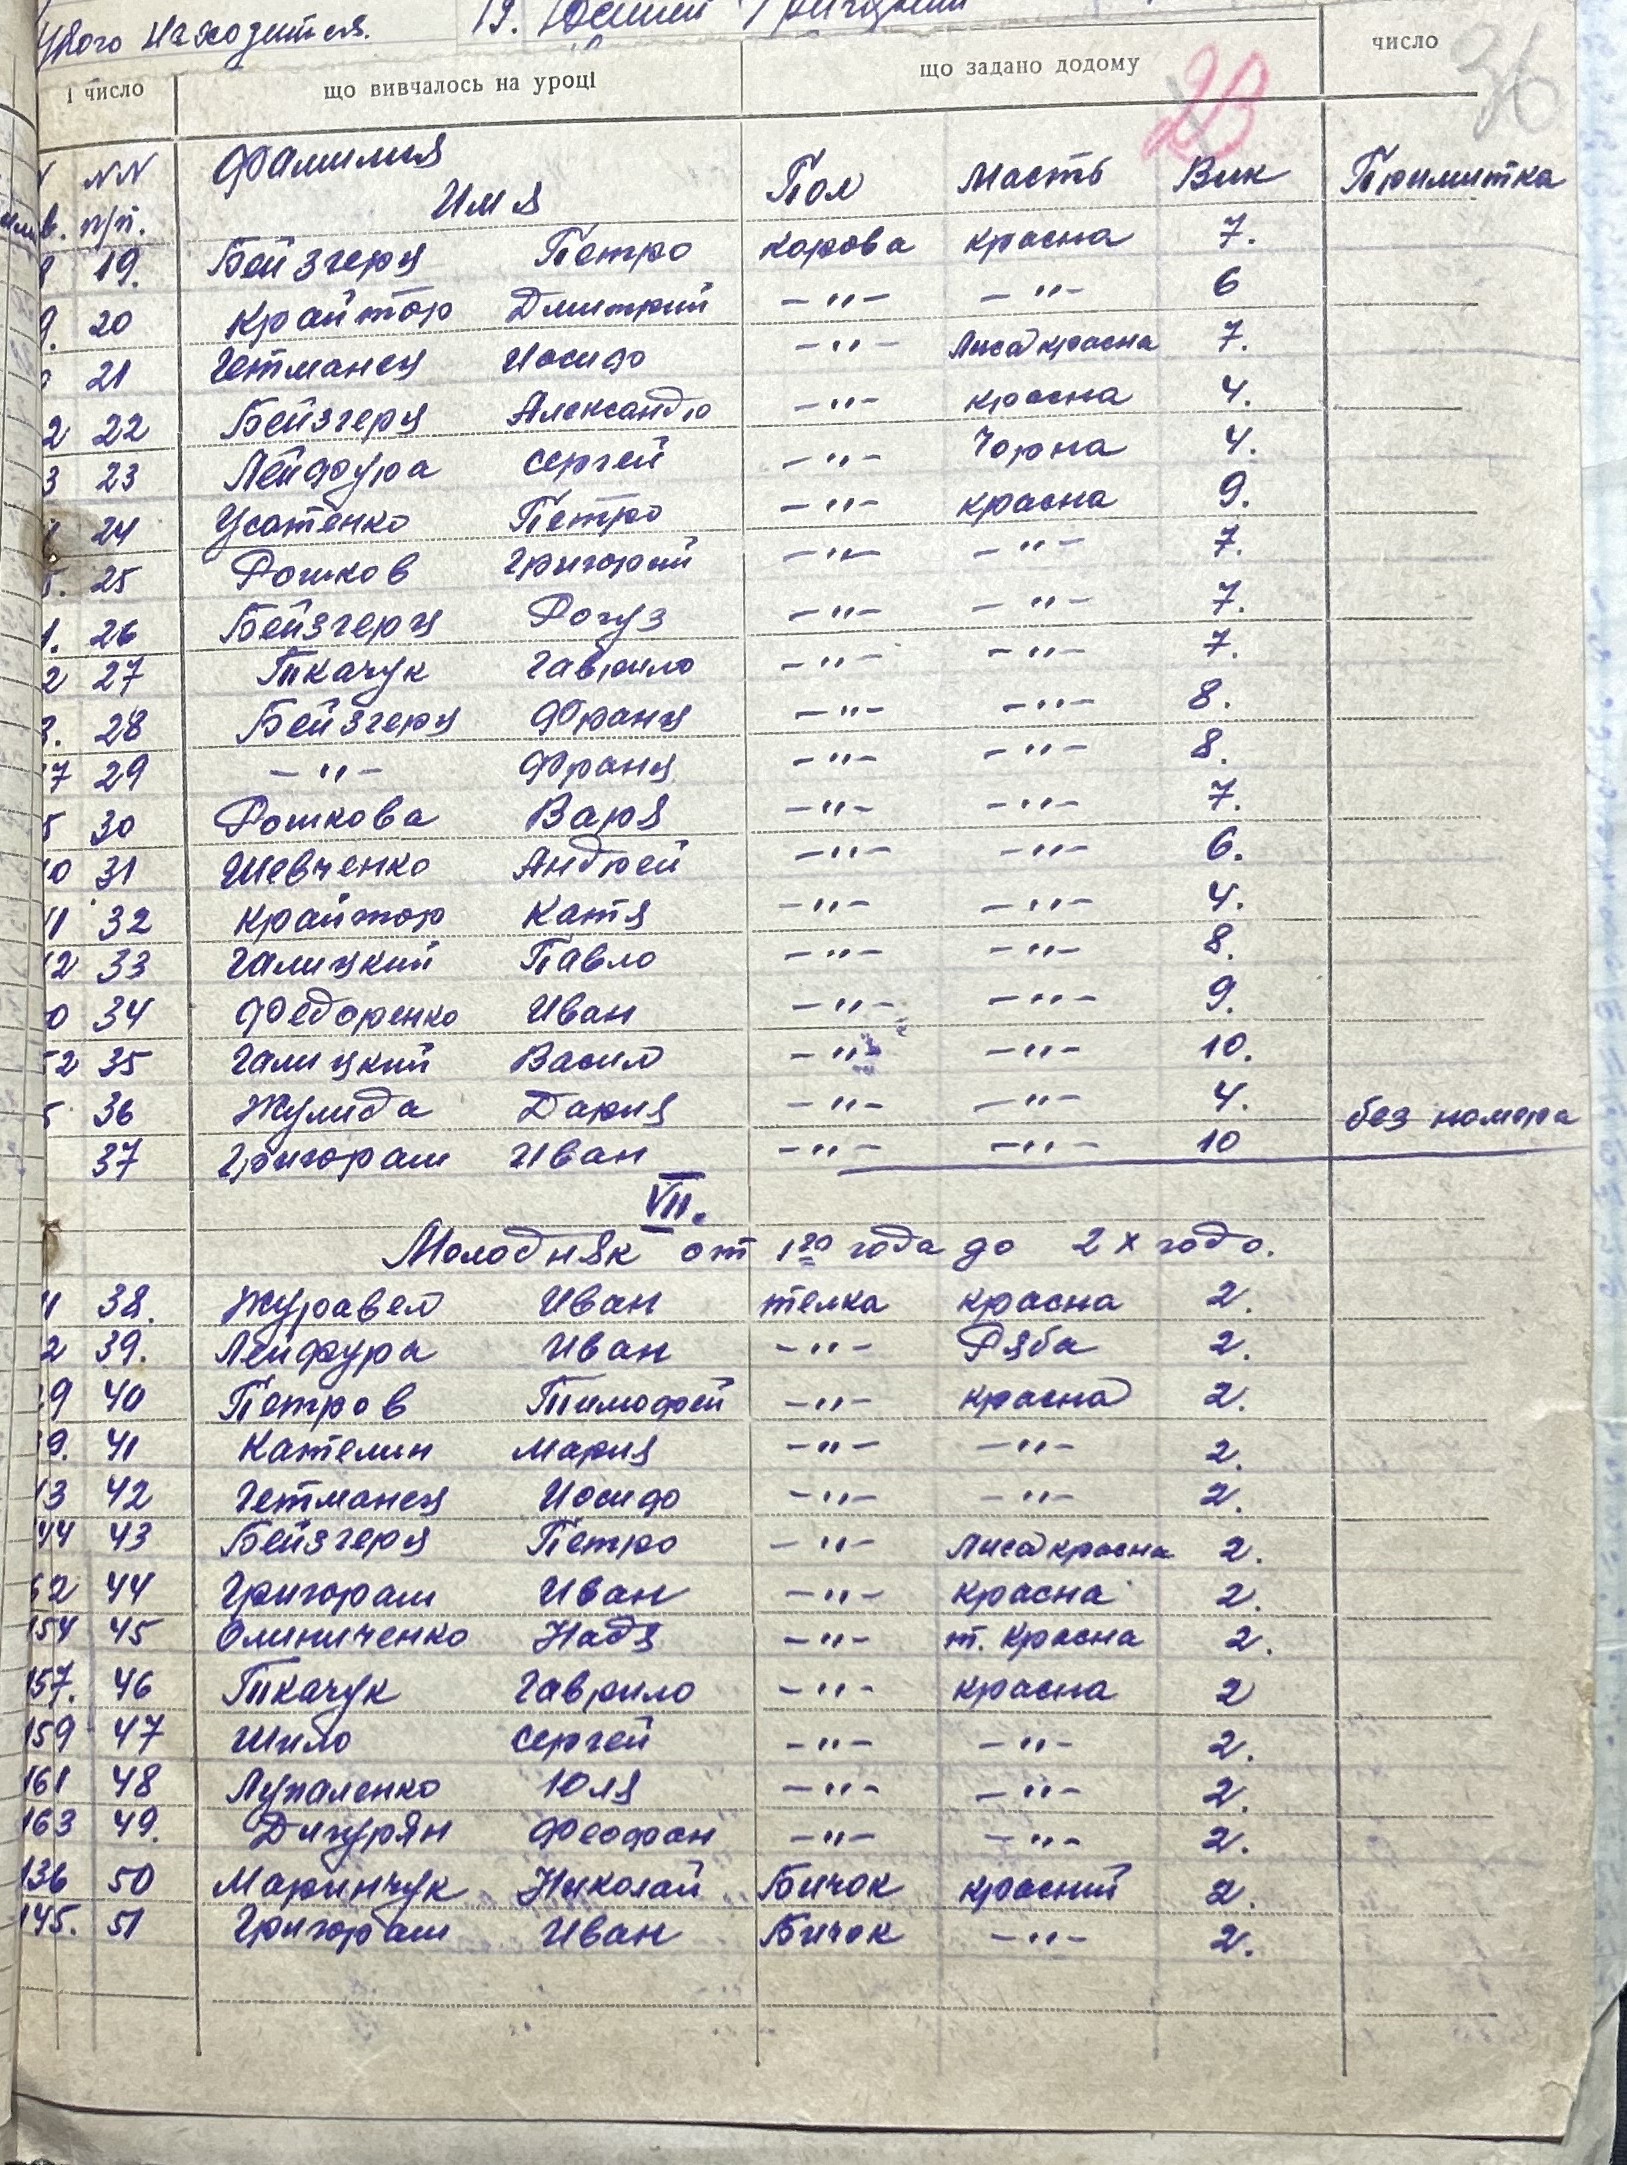 находится. 19.
і число що вивчалось на уроці що задано додому число
28 36
NN Фамилия
п/п. Имя Пол Масть Вик Примитка
19. Бейзгерц Петро корова красна 7.
20 Крайтор Дмитрий –"– –"– 6
21 Гетманец Иосиф –"– Лиса красна 7.
2 22 Бейзгерц Александр –"– красна 4.
3 23 Лейфура Сергей –"– Чорна 4.
24 Усатенко Петро –"– красна 9.
5. 25 Рошков Григорий –"– –"– 7.
1. 26 Бейзгерц Рогуз –"– –"– 7.
2 27 Ткачук Гаврило –"– –"– 7.
3. 28 Бейзгерц Франц –"– –"– 8.
7 29 –"– Франц –"– –"– 8.
5 30 Рошкова Варя –"– –"– 7.
0 31 Шевченко Андрей –"– –"– 6.
11 32 Крайтор Катя –"– –"– 4.
12 33 Галицкий Павло –"– –"– 8.
0 34 Федоренко Иван –"– –"– 9.
52 35 Галицкий Васил –"– –"– 10.
5 36 Жулида Дария –"– –"– 4.
37 Григораш Иван –"– –"– 10 без номера
VII.
Молодняк от 1го года до 2х годо.
38. Журавел Иван телка красна 2.
2 39. Лейфура Иван –"– Ряба 2.
9 40 Петров Тимофей –"– красна 2.
9. 41 Кателин Мария –"– –"– 2.
13 42 Гетманец Иосиф –"– –"– 2.
44 43 Бейзгерц Петро –"– Лиса красна 2.
52 44 Григораш Иван –"– красна 2.
154 45 Олиниченко Надя –"– т. красна 2.
157. 46 Ткачук Гаврило –"– красна 2
159 47 Шило Сергей –"– –"– 2.
161 48 Лупаленко Юля –"– –"– 2.
163 49. Дигурян Феофан –"– –"– 2.
136 50 Маринчук Николай Бичок красний 2.
145. 51 Григораш Иван Бичок –"– 2.